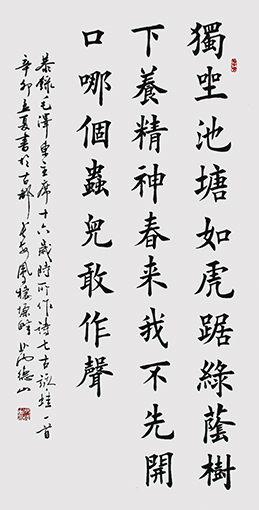 獨坐池塘如虎踞綠蔭樹
下養精神春来我不先開
口哪個蟲兒敢作聲
恭錄毛澤東主席十六歲時所作詩七古詠蛙一首
辛卯立夏書於古都長安